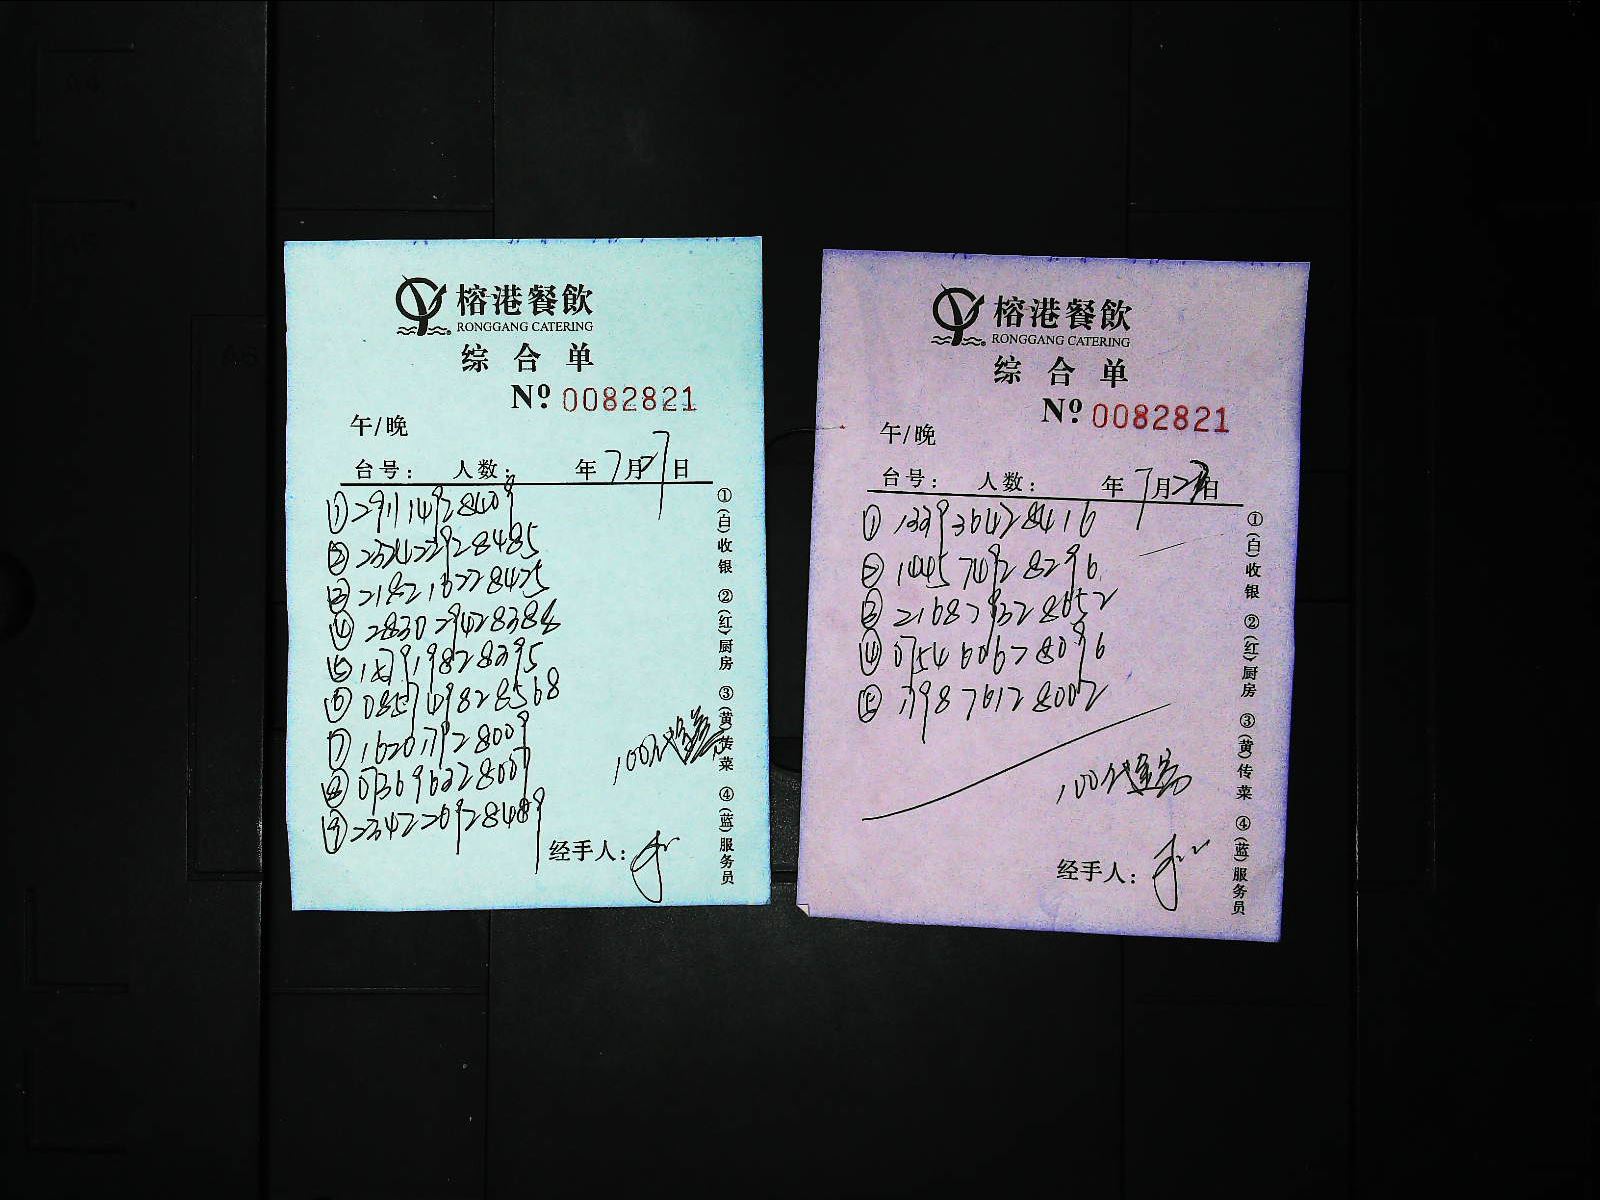 榕港餐飲
RONGGANG CATERING
综合单
Nº 0082821
午/晚
台号: 人数: 年 7月27日
① 29114928409
② 23242928485
③ 2182162728425
④ 283029428388
⑤ 187919828395
⑥ 0857109828568
⑦ 16201928009
⑧ 073696328007
⑨ 234220928489
100代金券
经手人:
①(白)收银 ②(红)厨房 ③(黄)传菜 ④(蓝)服务员
榕港餐飲
RONGGANG CATERING
综合单
Nº 0082821
午/晚
台号: 人数: 年 7月2日
① 133936428416
② 144574928296
③ 216879328652
④ 075460628096
⑤ 139876128002
100代金券
经手人:
①(白)收银 ②(红)厨房 ③(黄)传菜 ④(蓝)服务员